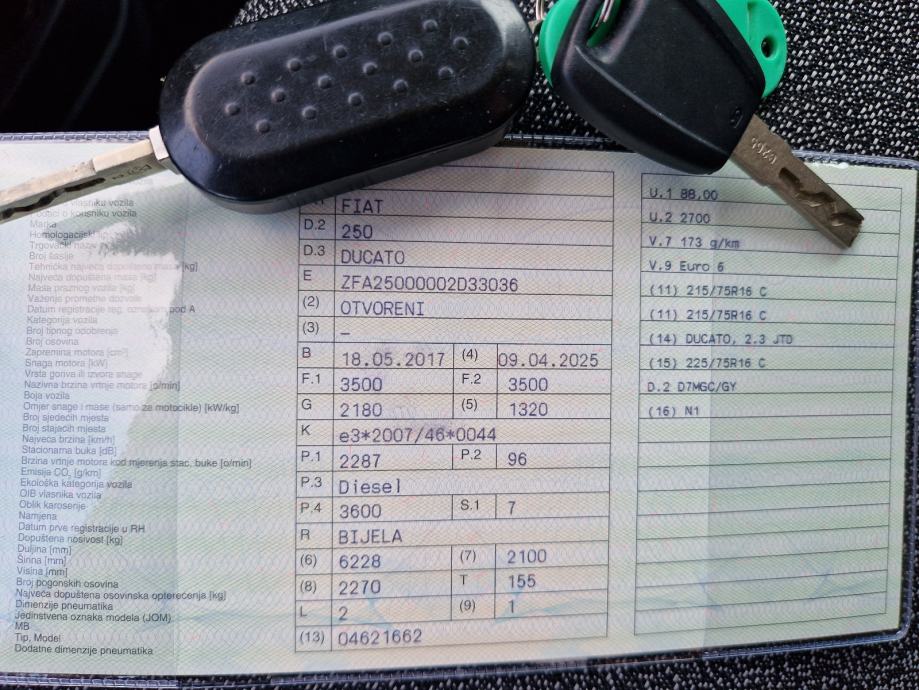 vlasniku vozila
Podaci o korisniku vozila
Marka
Homologacijski
Trgovački naziv
Broj šasije
Tehnička najveća dopuštena masa [kg]
Najveća dopuštena masa [kg]
Masa praznog vozila [kg]
Važenje prometne dozvole
Datum registracije reg. oznakom pod A
Kategorija vozila
Broj tipnog odobrenja
Broj osovina
Zapremina motora [cm³]
Snaga motora [kW]
Vrsta goriva ili izvora snage
Nazivna brzina vrtnje motora [o/min]
Boja vozila
Omjer snage i mase (samo za motocikle) [kW/kg]
Broj sjedećih mjesta
Broj stajaćih mjesta
Najveća brzina [km/h]
Stacionarna buka [dB]
Brzina vrtnje motora kod mjerenja stac. buke [o/min]
Emisija CO₂ [g/km]
Ekološka kategorija vozila
OIB vlasnika vozila
Oblik karoserije
Namjena
Datum prve registracije u RH
Dopuštena nosivost [kg]
Duljina [mm]
Širina [mm]
Visina [mm]
Broj pogonskih osovina
Najveća dopuštena osovinska opterećenja [kg]
Dimenzije pneumatika
Jedinstvena oznaka modela (JOM)
MB
Tip, Model
Dodatne dimenzije pneumatika
FIAT
D.2 250
D.3 DUCATO
E ZFA25000002D33036
(2) OTVORENI
(3) –
B 18.05.2017 (4) 09.04.2025
F.1 3500 F.2 3500
G 2180 (5) 1320
K e3*2007/46*0044
P.1 2287 P.2 96
P.3 Diesel
P.4 3600 S.1 7
R BIJELA
(6) 6228 (7) 2100
(8) 2270 T 155
L 2 (9) 1
(13) 04621662
U.1 88,00
U.2 2700
V.7 173 g/km
V.9 Euro 6
(11) 215/75R16 C
(11) 215/75R16 C
(14) DUCATO, 2.3 JTD
(15) 225/75R16 C
D.2 D7MGC/GY
(16) N1